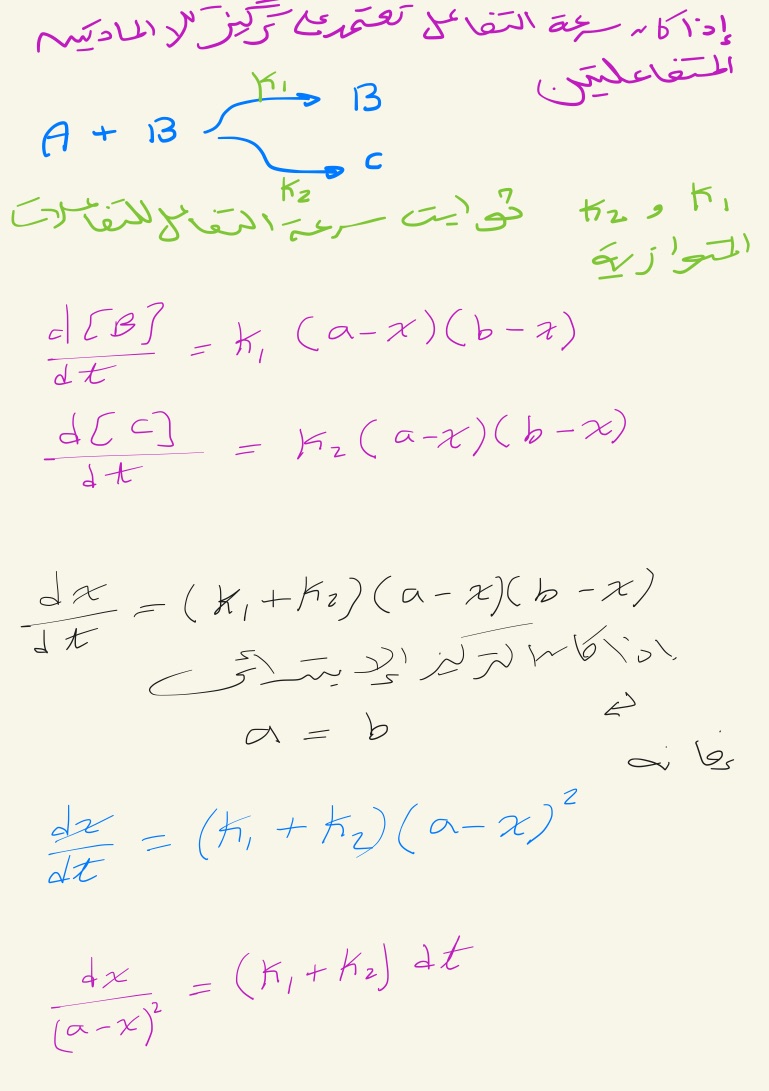 إذا كان سرعة التفاعل تعتمد على تركيز كلا المادتين
المتفاعلتين
A + B
K₁
B
K₂
C
K₁ و K₂ ثوابت سرعة التفاعل للتفاعلات
المتوازية
d[B]/dt = K₁ (a-x)(b-x)
d[C]/dt = K₂(a-x)(b-x)
dx/dt = (K₁+K₂)(a-x)(b-x)
اذا كان التركيز الإبتدائي
a = b
فإنه
dx/dt = (K₁ + K₂)(a-x)²
dx/(a-x)² = (K₁+K₂) dt